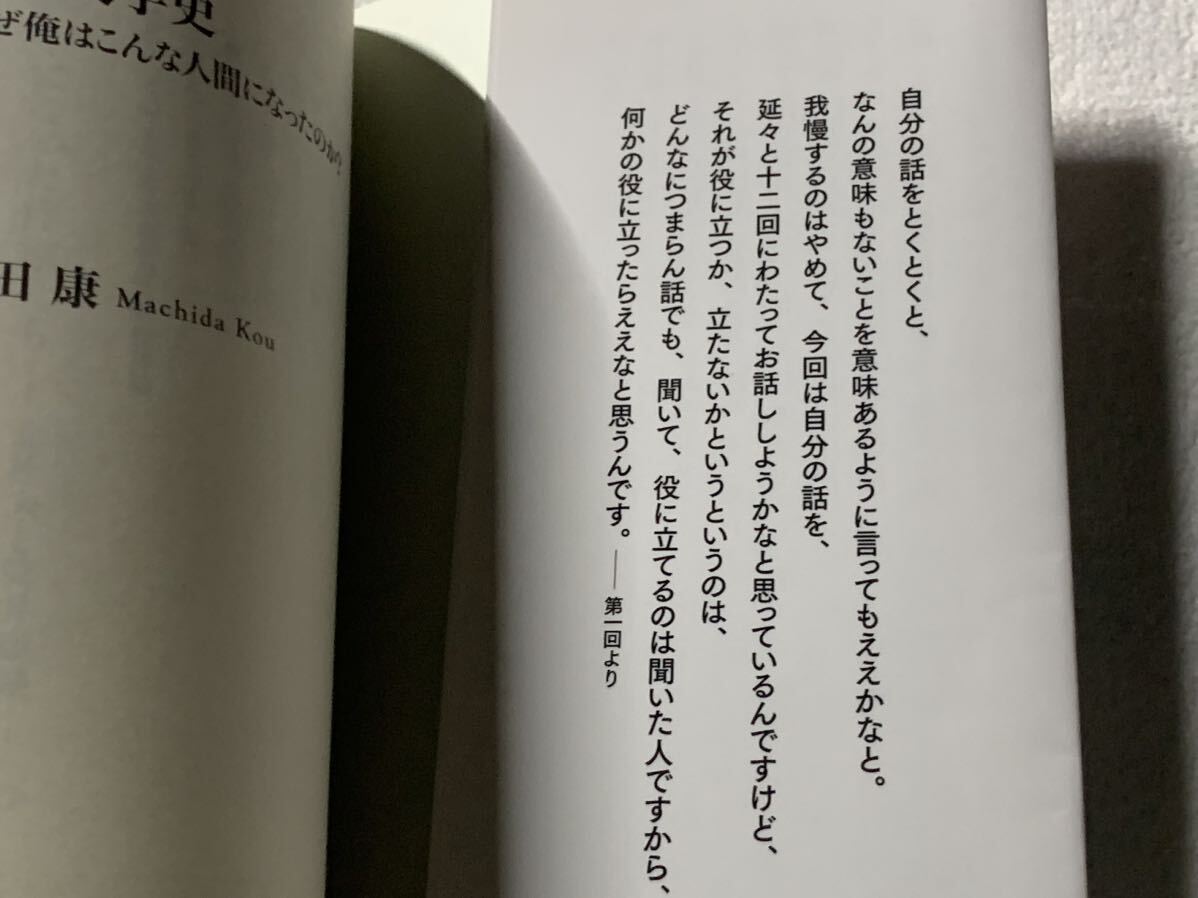 学史
ぜ俺はこんな人間になったのか?
田 康 Machida Kou
自分の話をとくとくと、
なんの意味もないことを意味あるように言ってもええかなと。
我慢するのはやめて、今回は自分の話を、
延々と十二回にわたってお話ししようかなと思っているんですけど、
それが役に立つか、立たないかというというのは、
どんなにつまらん話でも、聞いて、役に立てるのは聞いた人ですから、
何かの役に立ったらええなと思うんです。──第一回より